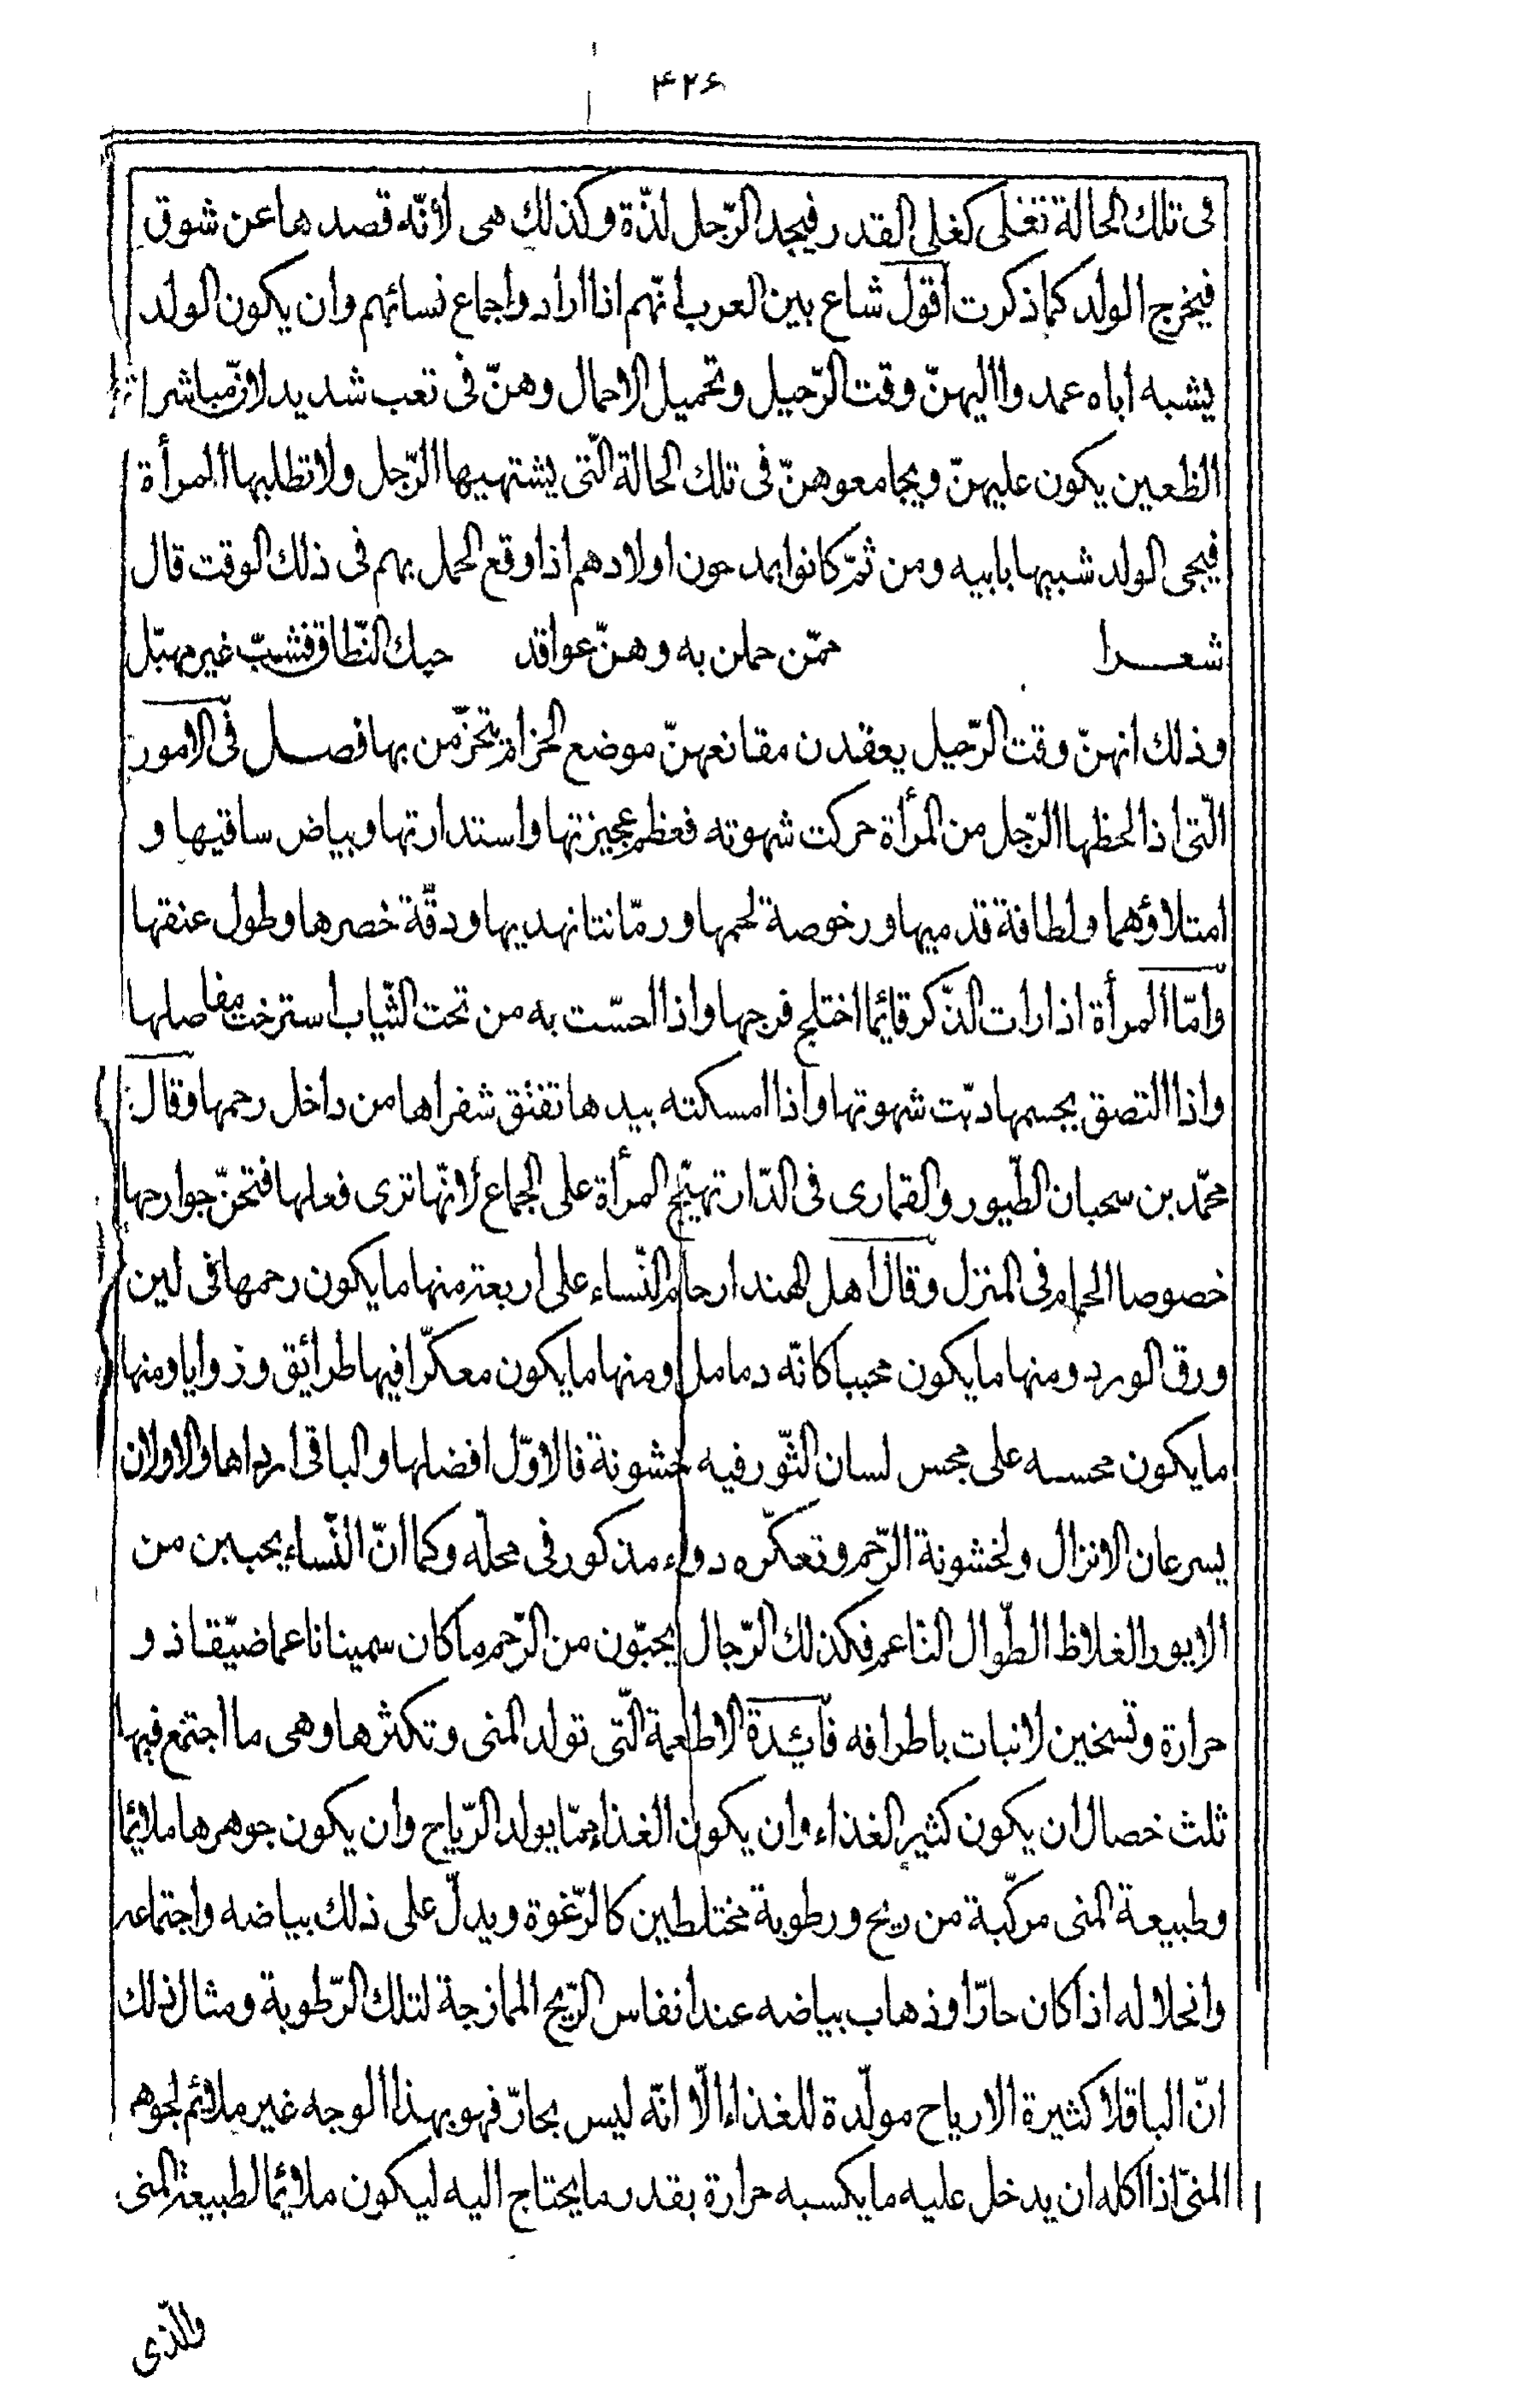 ۴۲۶
فى تلك الحالة تغلى كغلى القدر فيجد الرّجل لذّة وكذلك هى لأنّه قصدها عن شوق
فيخرج الولد كما ذكرت أقول شاع بين العرب انّهم اذا اراد واجماع نسائهم وان يكون الولد
يشبه اباه عمد وااليهنّ وقت الرّحيل وتحميل الاحمال وهنّ فى تعب شديد لانّ مباشرات
الظعين يكون عليهنّ ويجامعوهنّ فى تلك الحالة الّتى يشتهيها الرّجل ولا تطلبها المرأة
فيجى الولد شبيها بابيه ومن ثمّ كانوا يمدحون اولادهم اذا وقع الحمل بهم فى ذلك الوقت قال
شعـــرا ممّن حملن به وهنّ عواقد حبك النّطاق فشبّ غير مهبّل
وذلك انهنّ وقت الرّحيل يعقدن مقانعهنّ موضع الحزام يتحزّمن بها فصـــل فى الامور
الّتى اذا لحظها الرّجل من المرأة حركت شهوته فعظم عجيزتها واستدارتها وبياض ساقيها و
امتلاؤهما ولطافة قدميها ورخوصة لحمها ورمّانتا نهديها ودقّة خصرها وطول عنقها
وامّا المرأة اذا رات الذّكر قائما اختلج فرجها واذا احسّت به من تحت الثّياب استرخت مفاصلها
واذا التصق بجسمها دبّت شهوتها واذا امسكته بيدها تفتّق شفراها من داخل رحمها وقال
محمّد بن سحبان الطّيور والقمارى فى الدّار تهيّج المرأة على الجماع لانّها ترى فعلها فتحنّ جوارحها
خصوصا الحمام فى المنزل وقال اهل الهند ارحام النّساء على اربعة منها ما يكون رحمها فى لين
ورق الورد ومنها ما يكون محببا كانّه دمامل ومنها ما يكون معكّرا فيها طرائق وزوايا ومنها
ما يكون محسه على مجس لسان الثّور فيه خشونة فالاوّل افضلها والباقى ارداها والاولان
يسرعان الانزال ولخشونة الرّحم وتعكّره دواء مذكور فى محلّه وكما انّ النّساء يحببن من
الايور الغلاظ الطّوال النّاعم فكذلك الرّجال يحبّون من الرّحم ما كان سمينا ناعما ضيّقا ذو
حرارة وتسخين لا نبات باطرافه فائدة الاطعمة الّتى تولد المنى وتكثرها وهى ما اجتمع فيها
ثلث خصال ان يكون كثير الغذاء وان يكون الغذاء ممّا يولد الرّياح وان يكون جوهرها ملائما
وطبيعة المنى مركّبة من ريح ورطوبة مختلطين كالرّغوة ويدلّ على ذلك بياضه واجتماعه
وانحلاله اذا كان حارّا وذهاب بياضه عند انفاس الرّيح الممازجة لتلك الرّطوبة ومثال ذلك
انّ الباقلا كثيرة الارياح مولّدة للغذاء الّا انّه ليس بحارّ فهو بهذا الوجه غير ملائم لجوهر
المنىّ اذا اكله ان يدخل عليه ما يكسبه حرارة بقدر ما يحتاج اليه ليكون ملائما لطبيعة المنى
والّذى